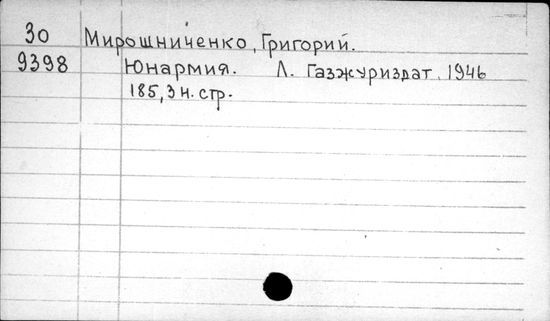 30 Мирошниченко, Григорий.
9398 Юнармия. Л. Газжуриздат. 1946
185, 3 н. стр.